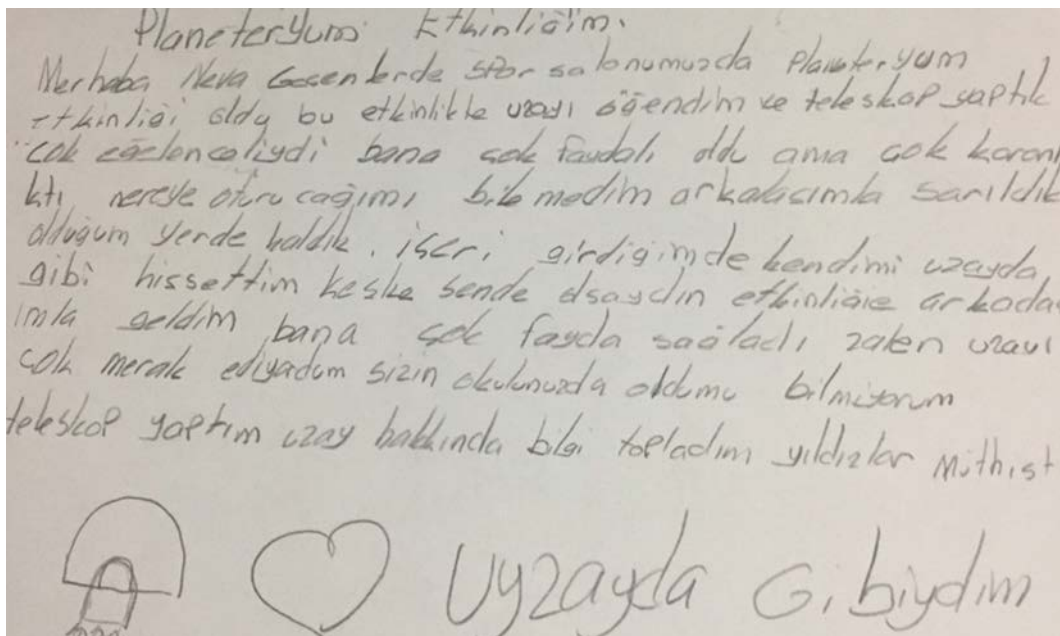 Planeteryum Etkinliğim.
Merhaba Neva Geçenlerde spor salonumuzda Planeteryum
etkinliği oldu bu etkinlikte uzayı öğendim ve teleskop yaptık
çok eğelenceliydi bana çok faydalı oldu ama çok karanl
ktı nereye oturucağımı bilemedim arkadaşımla sarıldık
olduğum yerde kaldık. içeri girdiğimde kendimi uzayda
gibi hissettim keske sende olsaydın etkinliğie arkada
ımla geldim bana çok fayda sağladı zaten uzayı
çok merak ediyadum sizin okulunuzda oldumu bilmiyorum
teleskop yaptım uzay hakkında bilgi topladım yıldızlar Müthişt
Uyzayda Gibiydim